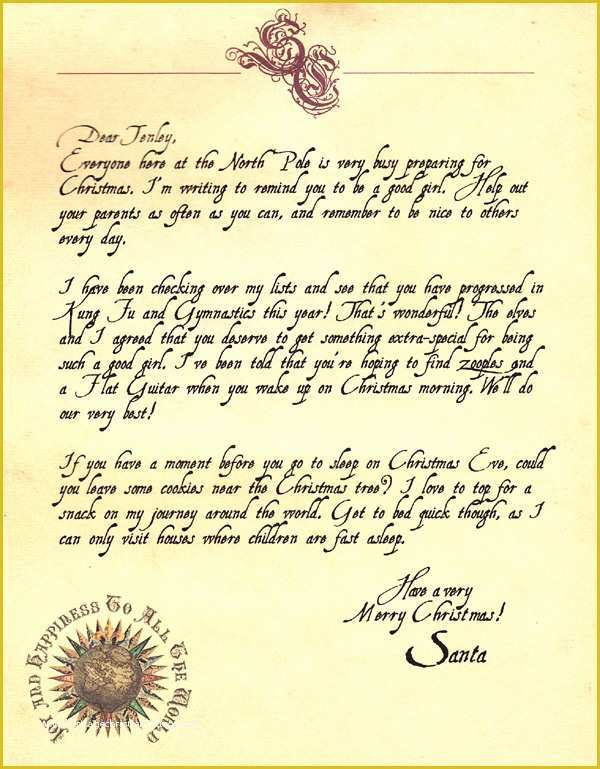 SC
Dear Tenley,
Everyone here at the North Pole is very busy preparing for
Christmas. I'm writing to remind you to be a good girl. Help out
your parents as often as you can, and remember to be nice to others
every day.
I have been checking over my lists and see that you have progressed in
Kung Fu and Gymnastics this year! That's wonderful! The elves
and I agreed that you deserve to get something extra-special for being
such a good girl. I've been told that you're hoping to find zooples and
a Flat Guitar when you wake up on Christmas morning. We'll do
our very best!
If you have a moment before you go to sleep on Christmas Eve, could
you leave some cookies near the Christmas tree? I love to top for a
snack on my journey around the world. Get to bed quick though, as I
can only visit houses where children are fast asleep.
Have a very
Merry Christmas!
Santa
Joy And Happiness To All The World